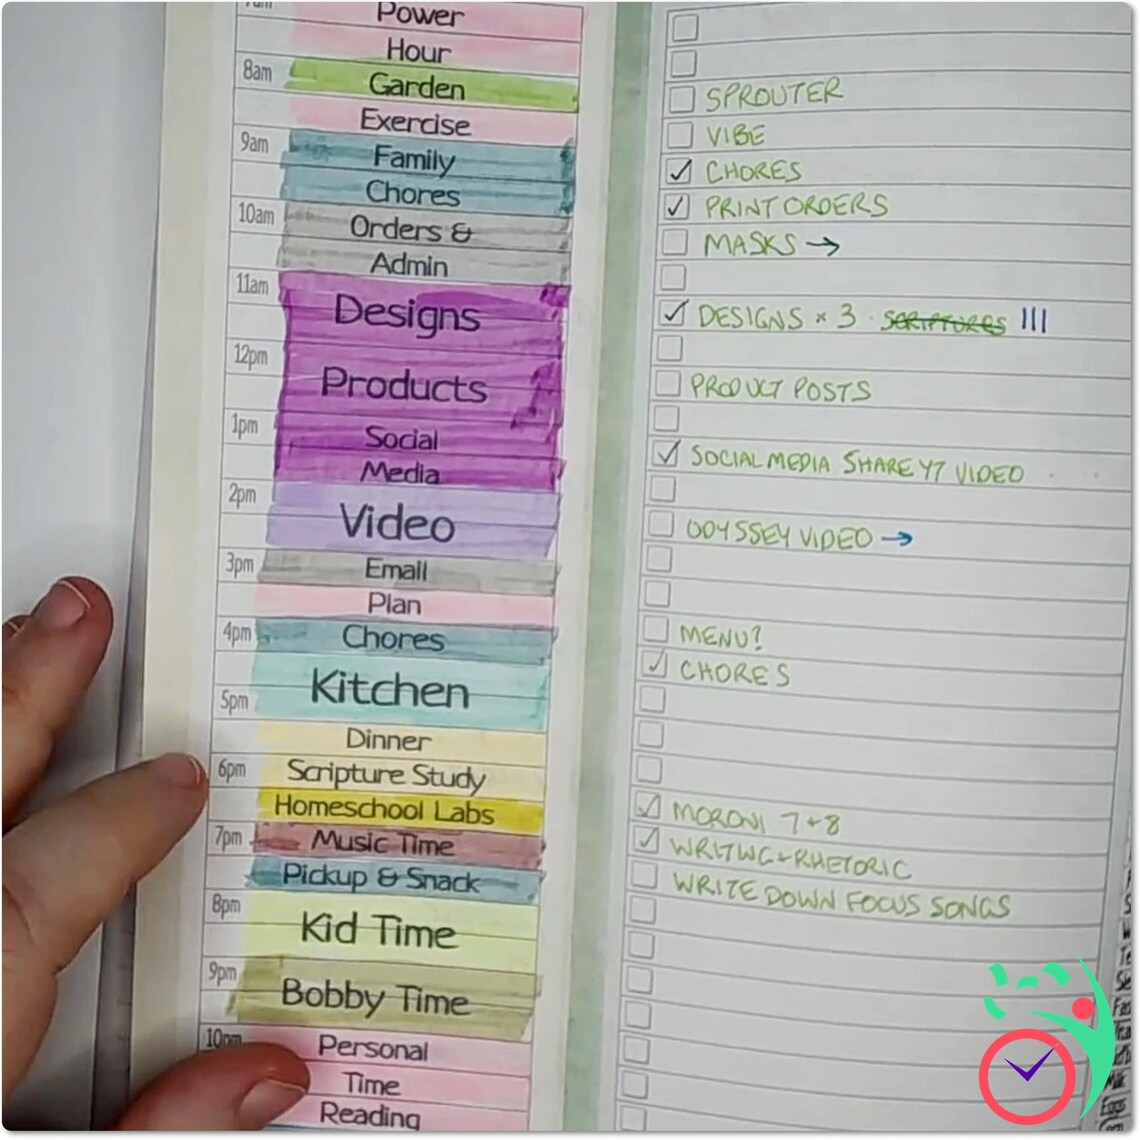 Power
Hour
8am
Garden
SPROUTER
Exercise
VIBE
9am
Family
CHORES
Chores
PRINT ORDERS
10am
Orders &
MASKS →
Admin
11am
Designs
DESIGNS × 3 · SCRIPTURES III
12pm
Products
PRODUCT POSTS
1pm
Social
Media
SOCIAL MEDIA SHARE YT VIDEO
2pm
Video
ODYSSEY VIDEO →
3pm
Email
Plan
4pm
Chores
MENU?
Kitchen
CHORES
5pm
Dinner
6pm
Scripture Study
Homeschool Labs
MORONI 7+8
7pm
Music Time
WRITING+RHETORIC
Pickup & Snack
WRITE DOWN FOCUS SONGS
8pm
Kid Time
9pm
Bobby Time
10pm
Personal
Time
Reading